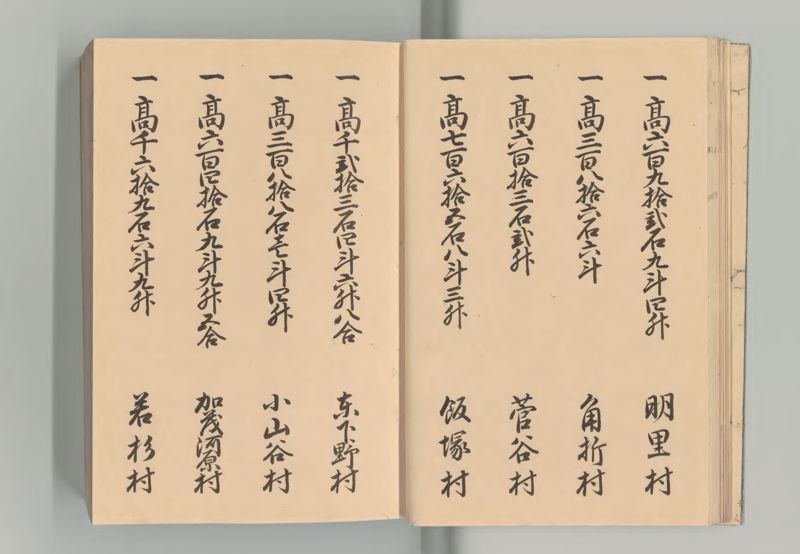 一高六百九拾弐石九斗四升 明里村
一高三百八拾六石六斗 角折村
一高六百拾三石弐升 菅谷村
一高七百六拾五石八斗三升 飯塚村
一高千弐拾三石四斗六升八合 東下野村
一高三百八拾八石壱斗四升 小山谷村
一高六百四拾石九斗九升五合 加茂河原村
一高千六拾九石六斗九升 若杉村